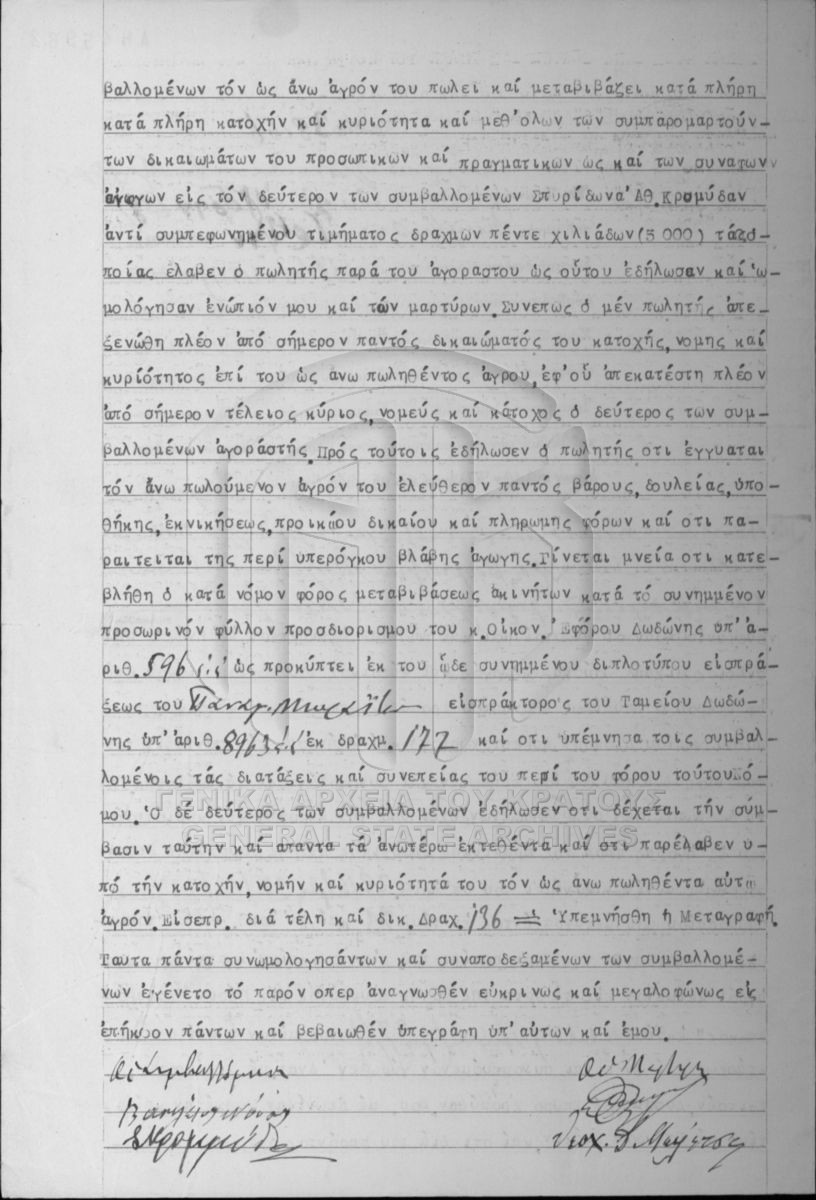 βαλλομένων τόν ὡς ἄνω ἀγρόν του πωλει καί μεταβιβάζει κατά πλήρη
κατά πλήρη κατοχήν καί κυριότητα καί μεθ'ολων των συμπαρομαρτούν-
των δικαιωμάτων του προσωπικων καί πραγματικων ὡς καί των συναφων
ἀγωγων εἰς τόν δεύτερον των συμβαλλομένων Σπυρίδωνα Ἀθ. Κρομύδαν
ἀντί συμπεφωνημένου τιμήματος δραχμων πέντε χιλιάδων (5 000) τάς ὁ-
ποίας ἐλαβεν ὁ πωλητής παρά του ἀγοραστου ὡς οὗτοι ἐδήλωσαν καί ὡ-
μολόγησαν ἐνώπιόν μου καί των μαρτύρων. Συνεπως ὁ μέν πωλητής ἀπε-
ξενώθη πλέον ἀπό σήμερον παντός δικαιώματός του κατοχής, νομης καί
κυριότητος ἐπί του ὡς ανω πωληθέντος ἀγρου, ἐφ'οὗ ἀπεκατέστη πλέον
ἀπό σήμερον τέλειος κύριος, νομεύς καί κάτοχος ὁ δεύτερος των συμ-
βαλλομένων ἀγοράστής. Πρός τούτοις ἐδήλωσεν ὁ πωλητής οτι ἐγγυαται
τόν ἄνω πωλούμενον ἀγρόν του ἐλεύθερον παντός βάρους, δουλείας, ὑπο-
θήκης, ἐκνικήσεως, προικώου δικαίου καί πληρωμης φόρων καί οτι πα-
ραιτειται της περί υπερόγκου βλάβης ἀγωγης. Γίνεται μνεία οτι κατε-
βλήθη ὁ κατά νόμον φόρος μεταβιβάσεως ἀκινήτων κατά τό συνημμένον
προσωρινόν φύλλον προσδιορισμου του κ. Οἰκον. Ἐφόρου Δωδώνης ὑπ'ἀ-
ριθ. 596 ὡς προκύπτει ἐκ του ὧδε συνημμένου διπλοτύπου εἰσπρά-
ξεως του εἰσπράκτορος του Ταμείου Δωδώ-
νης ὑπ'ἀριθ. 8963 ἐκ δραχμ. 177 καί οτι υπέμνησα τοις συμβαλ-
λομένοις τάς διατάξεις καί συνεπείας του περί του φόρου τούτου νό-
μου. Ὁ δέ δεύτερος των συμβαλλομένων ἐδήλωσεν οτι δέχεται τήν σύμ-
βασιν ταύτην καί ἀπαντα τά ἀνωτέρω ἐκτεθέντα καί οτι παρέλαβεν ὑ-
πό τήν κατοχήν, νομήν καί κυριότητά του τόν ὡς ανω πωληθέντα αὐτω
ἀγρόν. Εἰσεπρ. διά τέλη καί δικ. Δραχ. 136 Ὑπεμνήσθη ἡ Μεταγραφή.
Ταυτα πάντα συνωμολογησάντων καί συναποδεξαμένων των συμβαλλομέ-
νων ἐγένετο τό παρόν οπερ ἀναγνωσθέν εὐκρινως καί μεγαλοφώνως εἰς
ἐπήκοον πάντων καί βεβαιωθέν ὑπεγράφη ὑπ'αὐτων καί ἐμου.
Οἱ Συμβαλλόμενοι Οἱ Μάρτυρες
ΓΕΝΙΚΑ ΑΡΧΕΙΑ ΤΟΥ ΚΡΑΤΟΥΣ
GENERAL STATE ARCHIVES